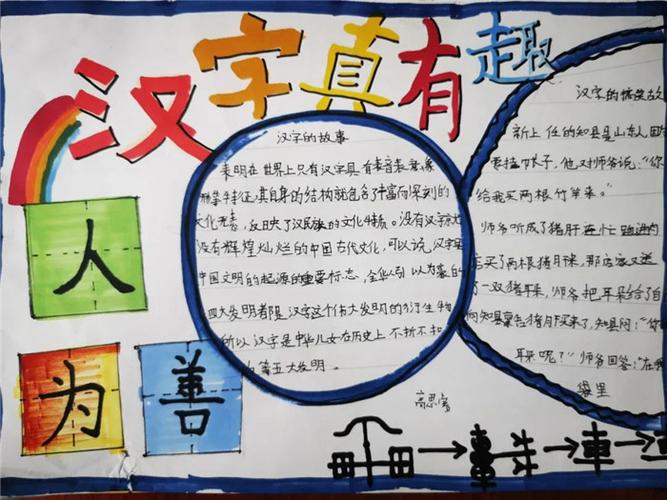 汉字真有趣
人
为 善
汉字的故事
表明在世界上只有汉字具有表音表意像
形等特征,其自身的结构就包含了丰富而深刻的
文化元素,反映了汉民族的文化特质。没有汉字
没有辉煌灿烂的中国古代文化,可以说,汉字是
中国文明的起源的重要标志,全华人引以为豪的
四大发明都是汉字这个伟大发明的衍生物
所以汉字是中华儿女在历史上不折不扣
第五大发明。
汉字的搞笑故
新上任的知县是山东人,因
要挂帐子,他对师爷说:“你
给我买两根竹竿来。”
师爷听成了猪肝连忙跑进肉
店买了两根猪肝来,那店家又送
了一双猪耳朵,师爷把耳朵给了自
向知县禀告猪肝买来了,知县问:“你
耳朵呢?”师爷回答:“在我
袋里
車